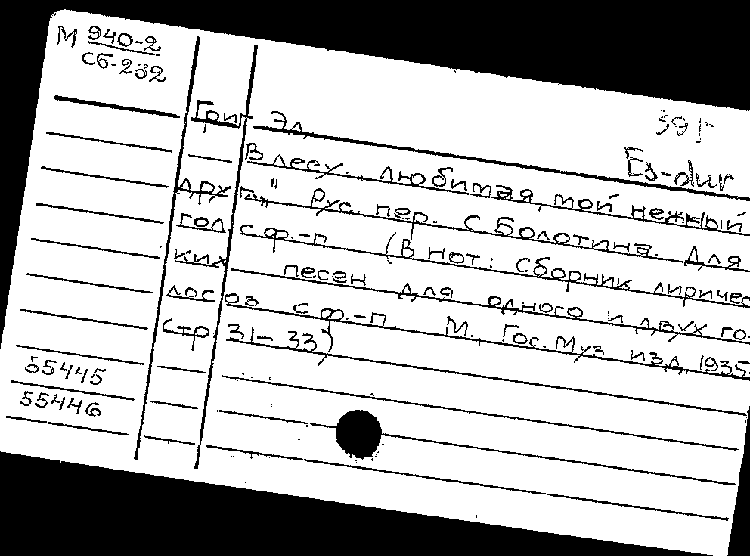 М 940-2
Сб-232
Григ Эд.
Es-dur
В лесу... любимая, мой нежный
друг..." Рус. пер. С Болотина. Для
гол. с ф.-п (В нот: Сборник лиричес
ких песен для одного и двух го-
лосов с ф.-п. М., Гос. Муз изд, 1935.
стр. 31-33)
55445
55446